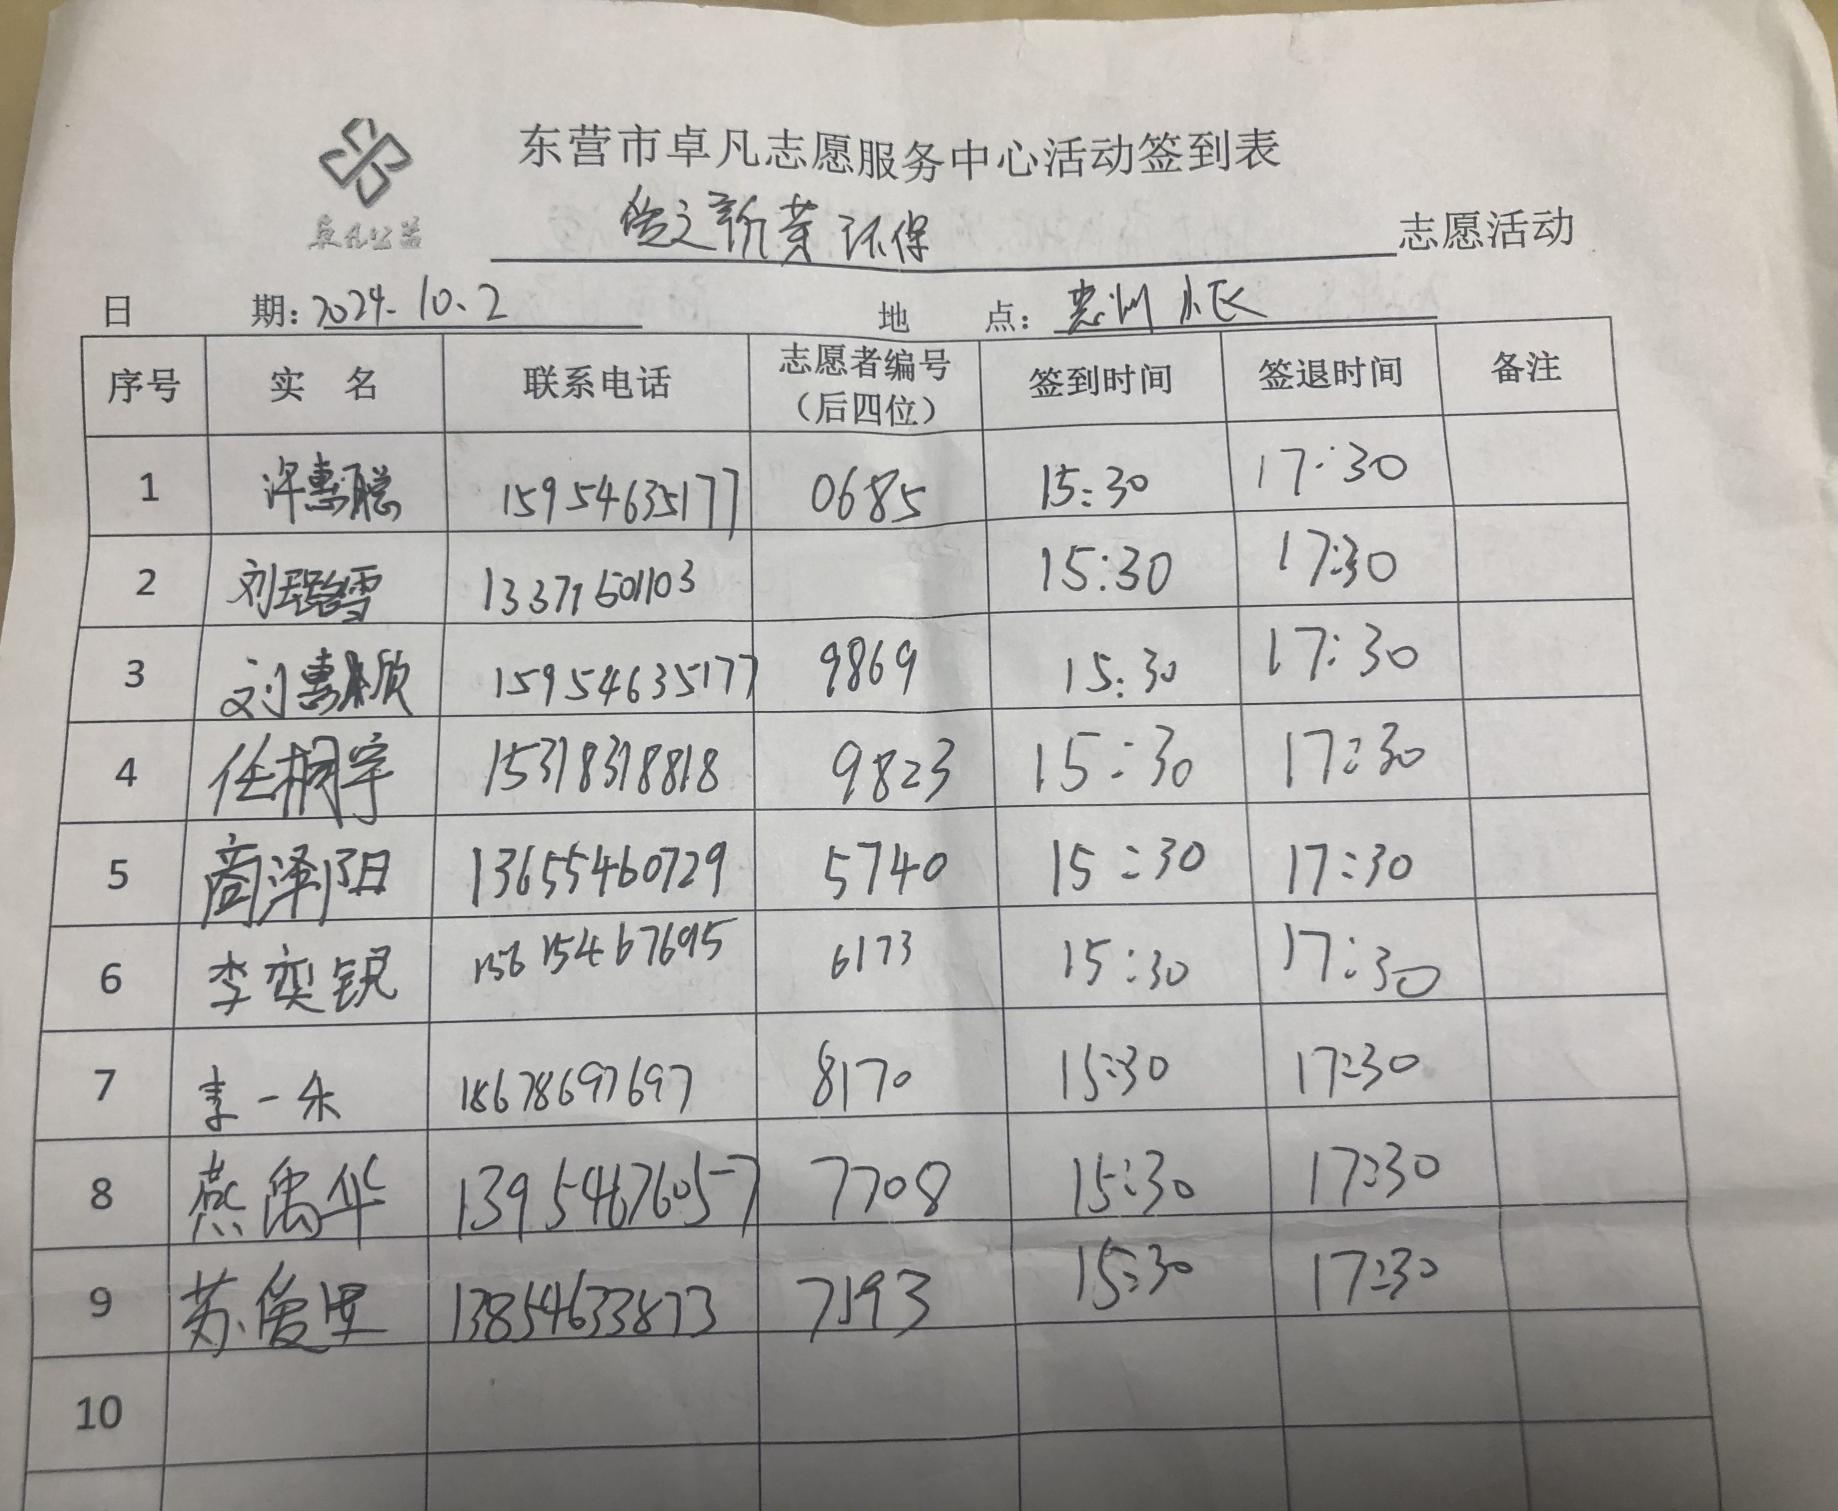 东营市卓凡志愿服务中心活动签到表
卓凡公益
环保 志愿活动
日 期: 2024.10.2 地 点:
序号 实 名 联系电话 志愿者编号（后四位） 签到时间 签退时间 备注
1 许惠聪 15954635177 0685 15:30 17:30
2 刘璐雪 13371601103 15:30 17:30
3 刘惠颖 15954635177 9869 15:30 17:30
4 任桐宇 15318318818 9823 15:30 17:30
5 商泽阳 13655460729 5740 15:30 17:30
6 李奕锐 6173 15:30 17:30
7 李一禾 18678697697 8170 15:30 17:30
8 燕禹华 13954676057 7708 15:30 17:30
9 苏俊 13854633873 7193 15:30 17:30
10